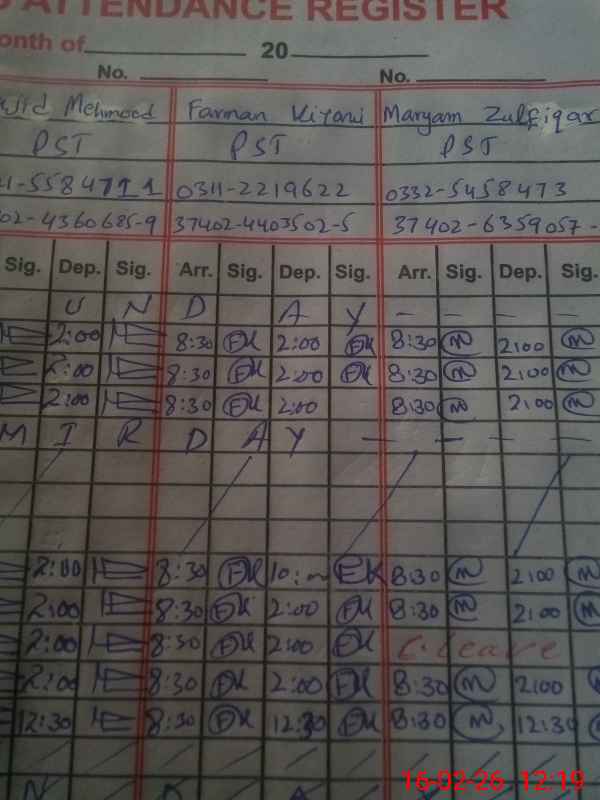 ATTENDANCE REGISTER
onth of 20
No. No.
Mehmood Farman Kiyani Maryam Zulfiqar
PST PST PST
1-5584711 0311-2219622 0332-5458473
02-4360685-9 37402-4403502-5 37402-6359057-
Sig. Dep. Sig. Arr. Sig. Dep. Sig. Arr. Sig. Dep. Sig.
U N D A Y - - - -
2:00 8:30 FK 2:00 FK 8:30 m 2:00 m
2:00 8:30 FK 2:00 FK 8:30 m 2:00 m
2:00 8:30 FK 2:00 8:30 m 2:00 m
M I R D A Y - - - -
2:00 8:30 FK 10:00 FK 8:30 m 2:00 m
2:00 8:30 FK 2:00 FK 8:30 m 2:00 m
2:00 8:30 FK 2:00 FK C.leave
2:00 8:30 FK 2:00 FK 8:30 m 2:00
12:30 8:30 FK 12:30 FK 8:30 m 12:30
16-02-26 12:19